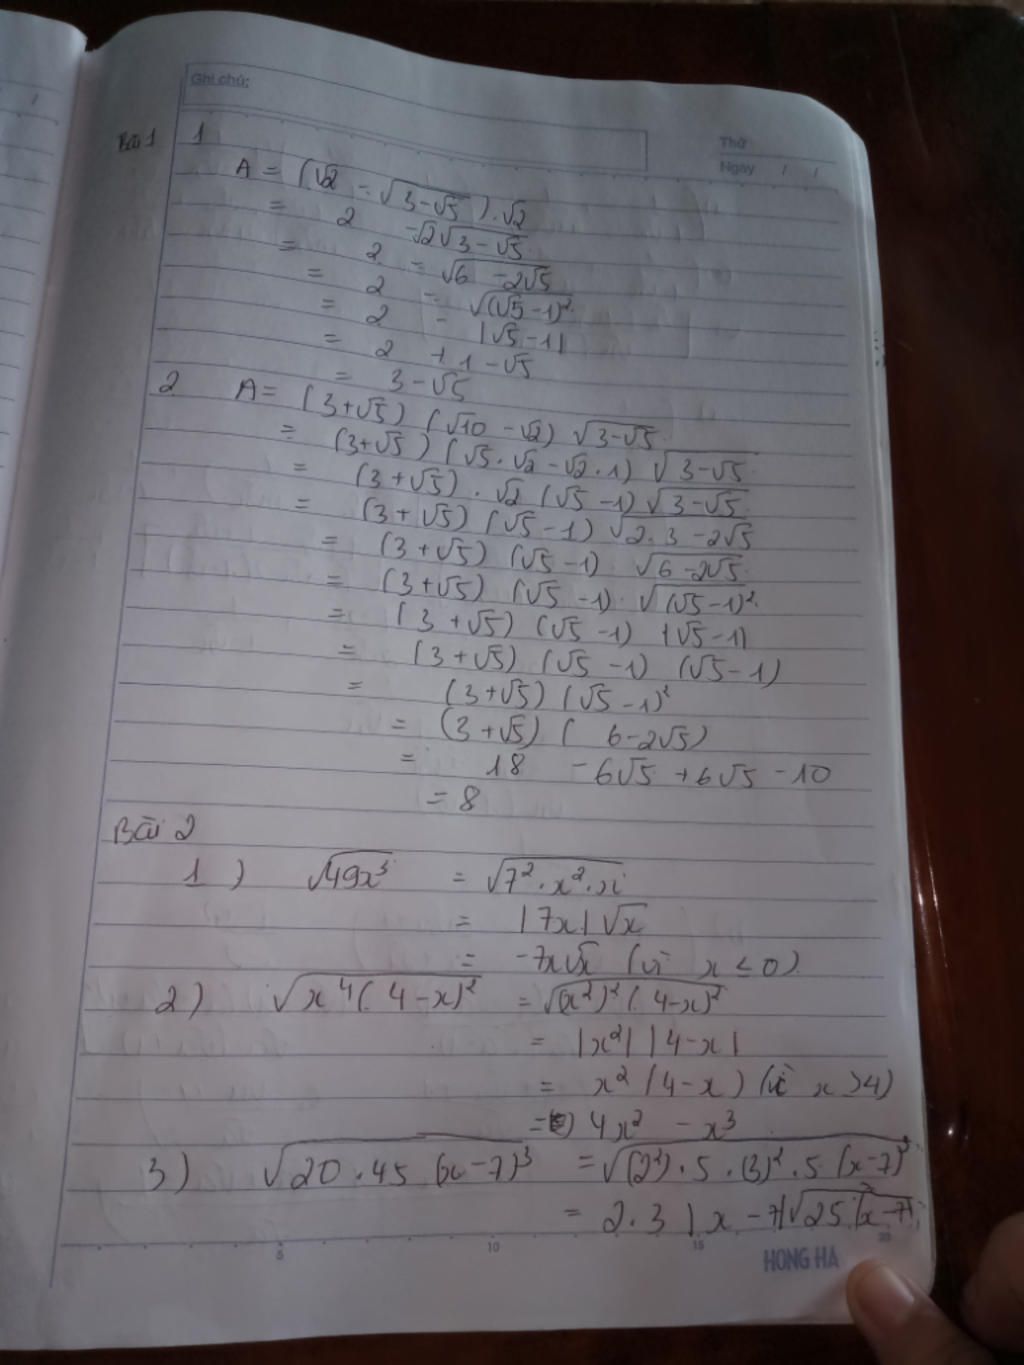 Ghi chú:
Thứ
Ngày / /
Bài 1 1
A = (√2 - √(3-√5)) . √2
= 2 - √2√(3-√5)
= 2 - √(6 - 2√5)
= 2 - √((√5-1)²)
= 2 - |√5-1|
= 2 + 1 - √5
= 3 - √5
2 A = (3+√5) (√10 - √2) √(3-√5)
= (3+√5) (√5 . √2 - √2 . 1) √(3-√5)
= (3+√5) . √2 (√5-1) √(3-√5)
= (3+√5) (√5-1) √(2.3 - 2√5)
= (3+√5) (√5-1) √(6-2√5)
= (3+√5) (√5-1) . √((√5-1)²)
= (3+√5) (√5-1) |√5-1|
= (3+√5) (√5-1) (√5-1)
= (3+√5) (√5-1)²
= (3+√5) (6-2√5)
= 18 - 6√5 + 6√5 - 10
= 8
Bài 2
1) √(49x³) = √(7² . x² . x)
= |7x| √x
= -7x√x (vì x ≤ 0)
2) √(x⁴(4-x)²) = √((x²)² (4-x)²)
= |x²| |4-x|
= x² (4-x) (vì x > 4)
= 4x² - x³
3) √(20 . 45 (x-7)³) = √((2²) . 5 . (3)² . 5 (x-7)³)
= 2.3 |x-7| √(25 (x-7))
5 10 15 20
HONG HA